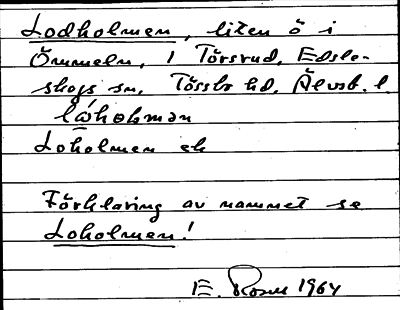 Lodholmen, liten ö i
Ömmeln, i Törsrud, Edsle-
skogs sn, Tössbo hd, Älvsb. l.
Loholmen ek
Förklaring av namnet se
Loholmen!
E. Rosell 1964